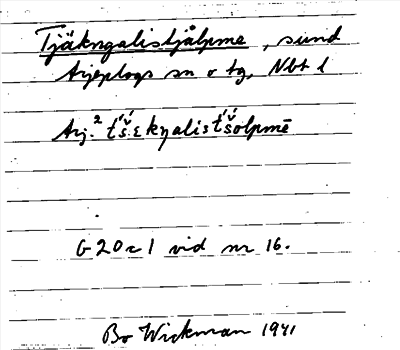 Tjäkngalistjålpme, sund
Arjeplogs sn o tg, Nbt l
Arj. ² t́š́ɛkŋalist́š́olpmē
G 20 a 1 vid nr 16.
Bo Wickman 1941